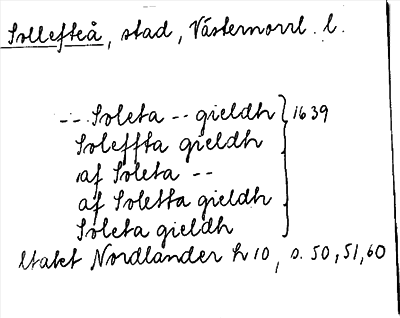 Sollefteå, stad, Västernorrl. l.
-- Soleta -- gieldh } 1639
Soleffta gieldh
af Soleta --
af Soletta gieldh
Soleta gieldh
Utalet Nordlander h 10, s. 50, 51, 60